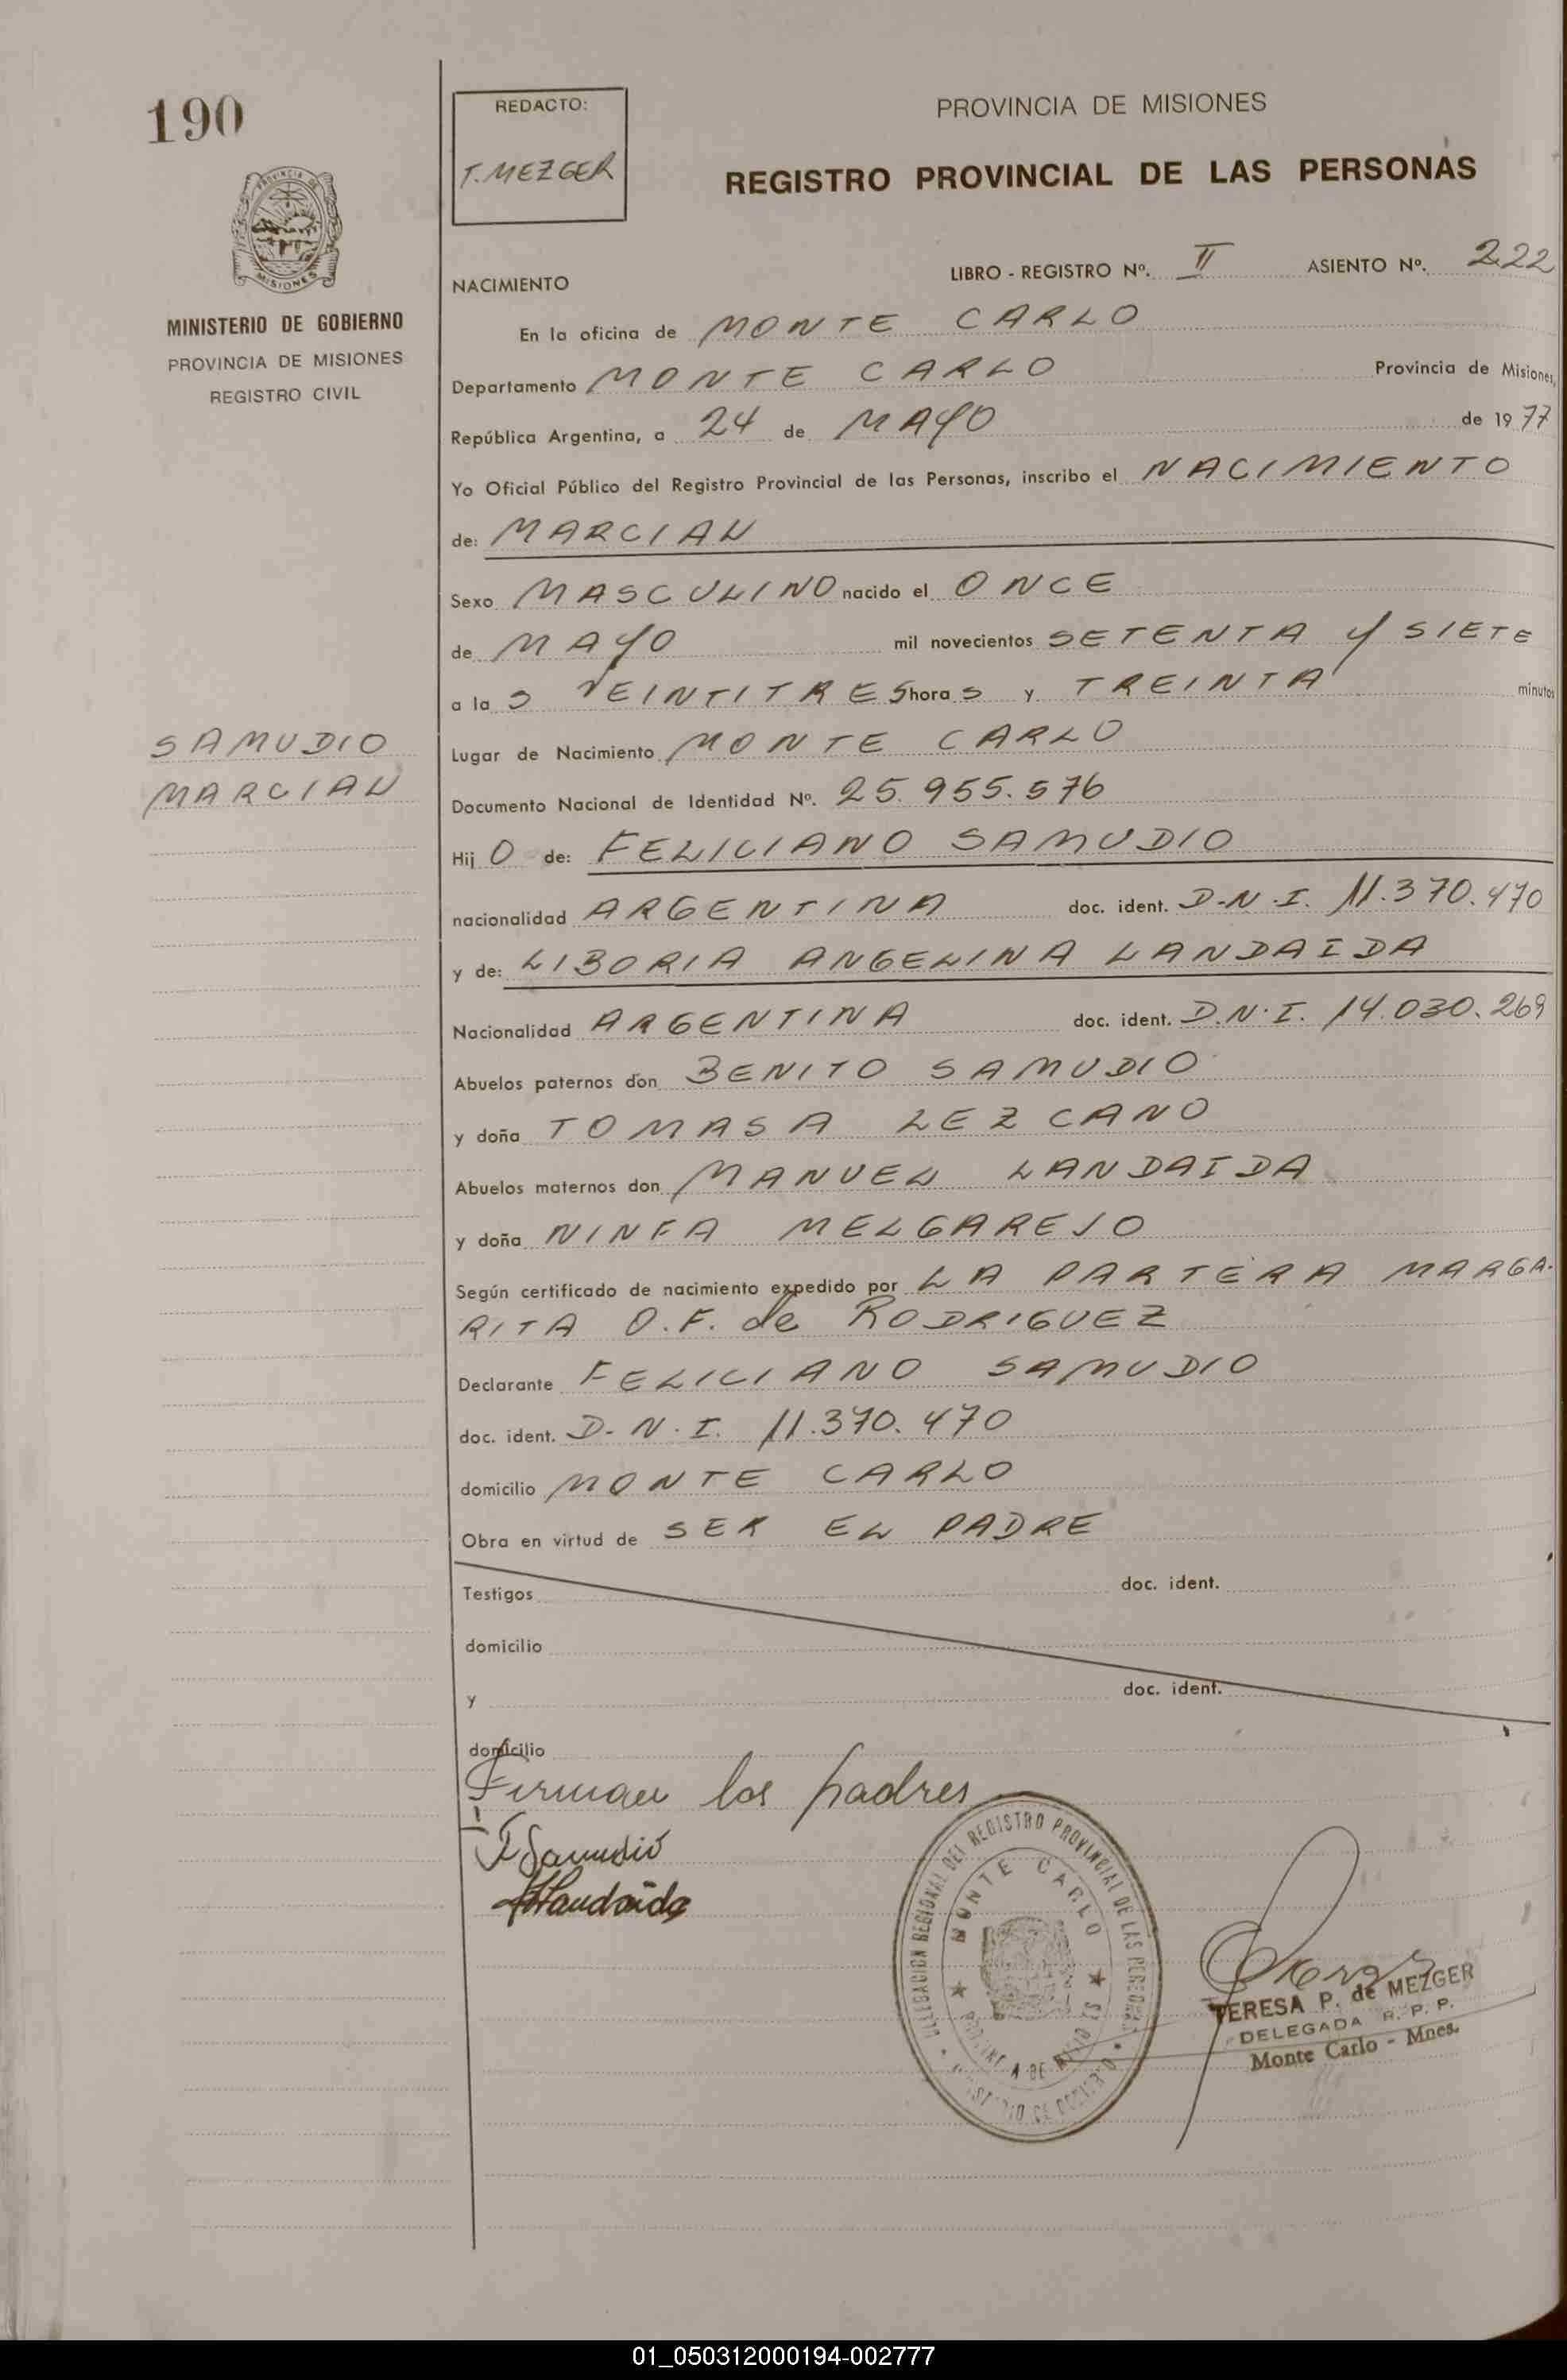 190
REDACTO:
T. MEZGER
PROVINCIA DE MISIONES
REGISTRO PROVINCIAL DE LAS PERSONAS
MINISTERIO DE GOBIERNO
PROVINCIA DE MISIONES
REGISTRO CIVIL
NACIMIENTO
LIBRO - REGISTRO Nº. II ASIENTO Nº. 222
En la oficina de MONTE CARLO
Departamento MONTE CARLO Provincia de Misiones,
República Argentina, a 24 de MAYO de 1977
Yo Oficial Público del Registro Provincial de las Personas, inscribo el NACIMIENTO
de: MARCIAL
Sexo MASCULINO nacido el ONCE
de MAYO mil novecientos SETENTA y SIETE
a la s VEINTITRES horas y TREINTA minutos
SAMUDIO
MARCIAL
Lugar de Nacimiento MONTE CARLO
Documento Nacional de Identidad Nº. 25.955.576
Hij O de: FELICIANO SAMUDIO
nacionalidad ARGENTINA doc. ident. D.N.I. 11.370.470
y de: LIBORIA ANGELINA LANDAIDA
Nacionalidad ARGENTINA doc. ident. D.N.I. 14.030.269
Abuelos paternos don BENITO SAMUDIO
y doña TOMASA LEZCANO
Abuelos maternos don MANUEL LANDAIDA
y doña NINFA MELGAREJO
Según certificado de nacimiento expedido por LA PARTERA MARGA-
RITA O.F. de RODRIGUEZ
Declarante FELICIANO SAMUDIO
doc. ident. D.N.I. 11.370.470
domicilio MONTE CARLO
Obra en virtud de SER EL PADRE
Testigos doc. ident.
domicilio
y doc. ident.
domicilio
Firman los padres
F Samudio
Landaida
DELEGACION REGIONAL DEL REGISTRO PROVINCIAL DE LAS PERSONAS
MONTE CARLO
TERESA P. de MEZGER
DELEGADA R. P. P.
Monte Carlo - Mnes.
01_050312000194-002777